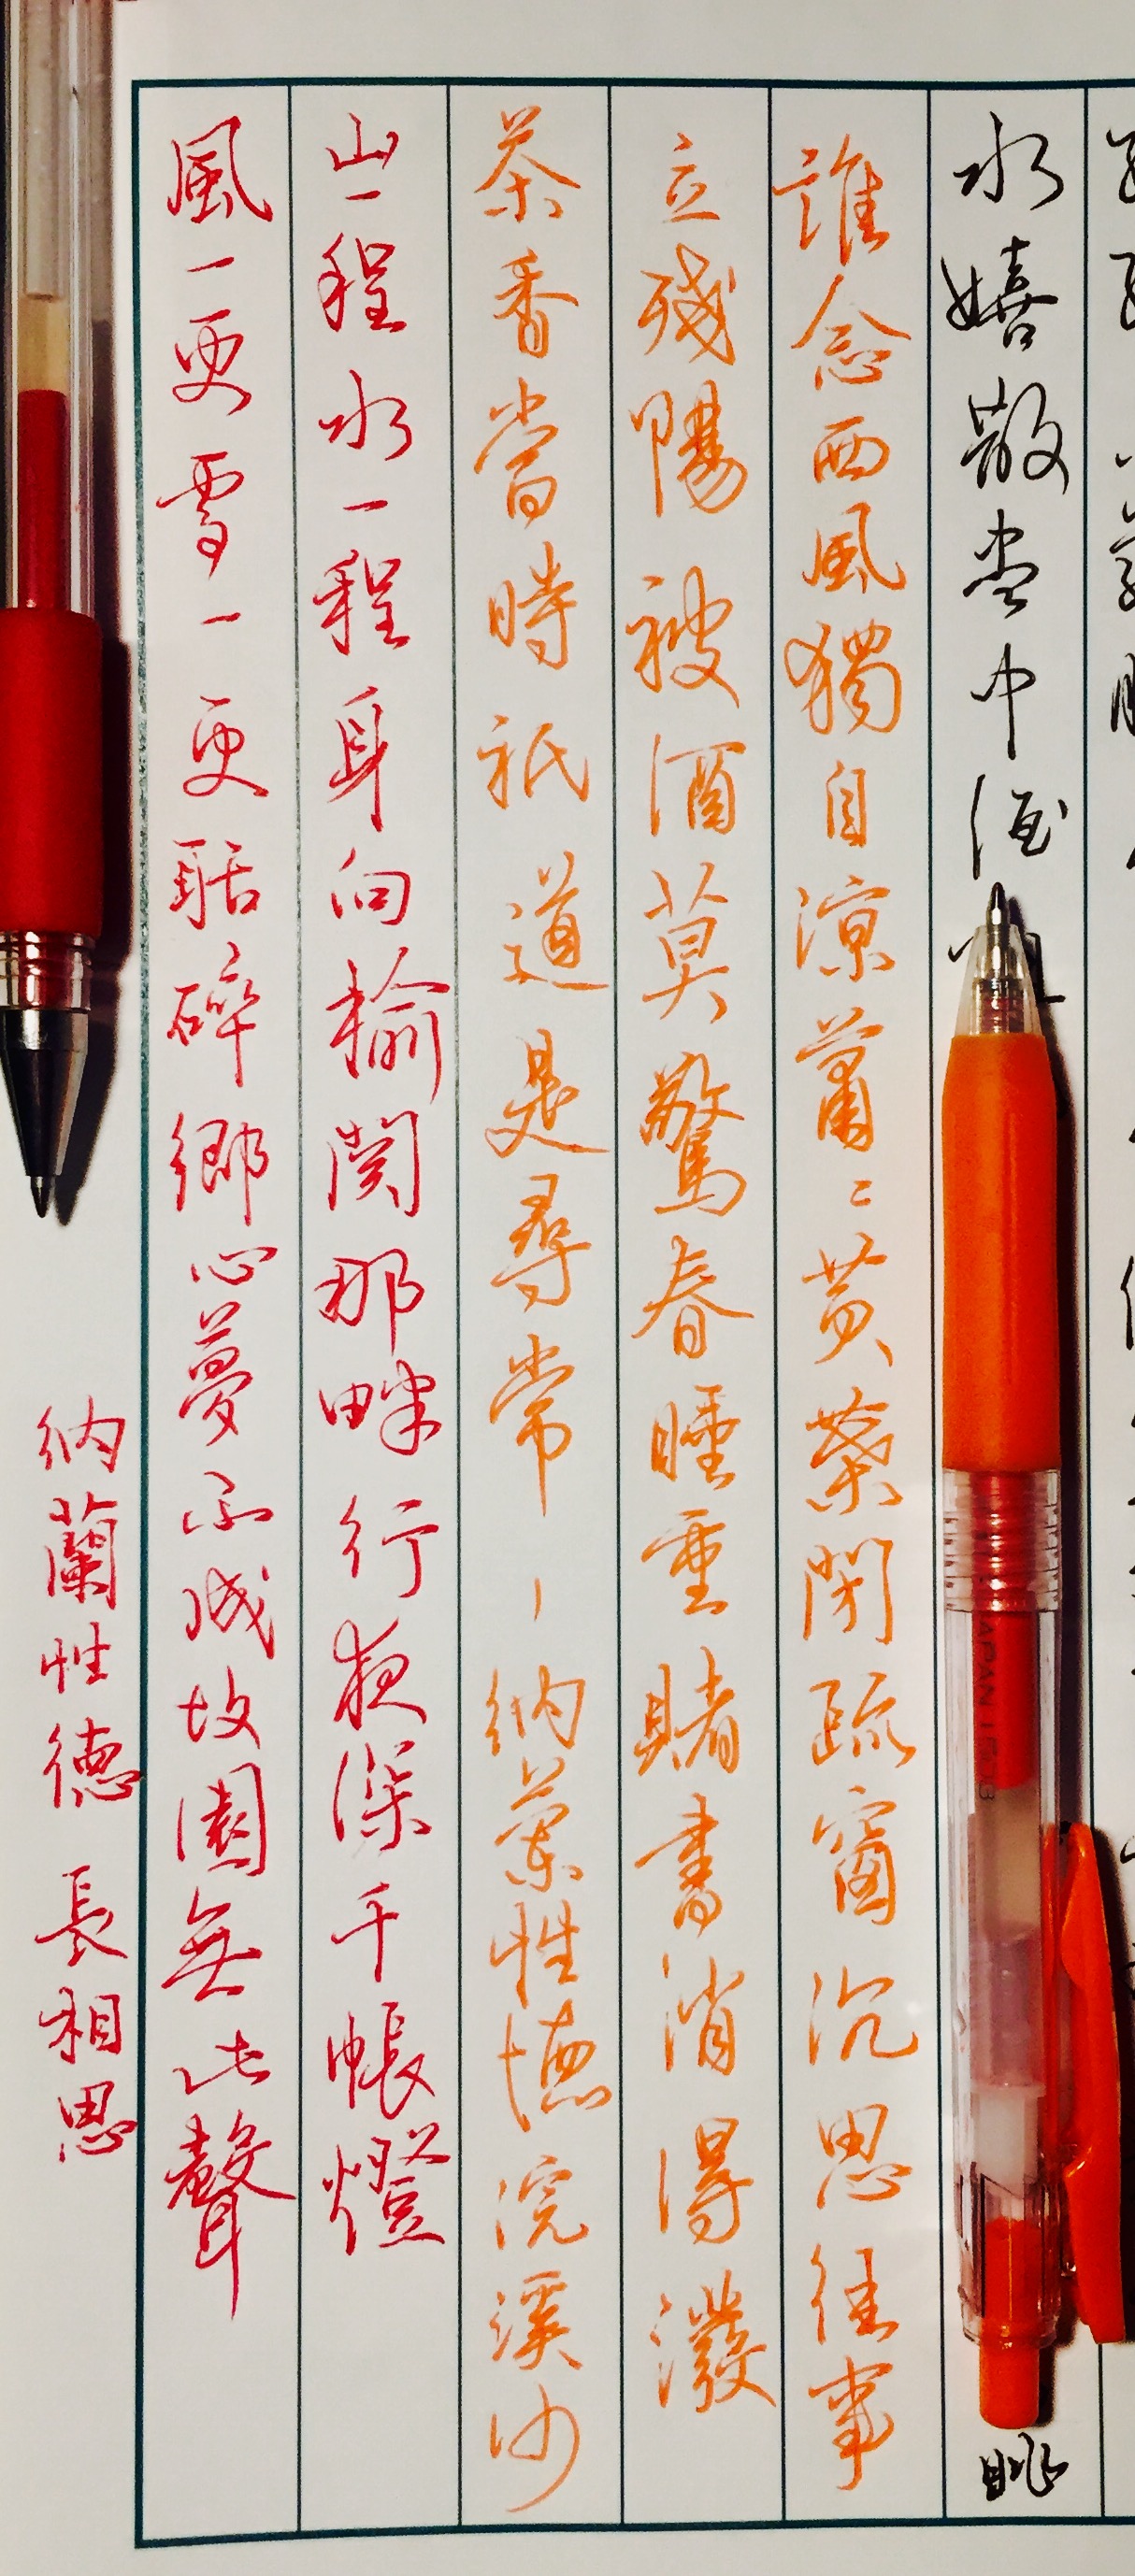 水嬉散尽中酒
眺
誰念西風獨自涼蕭〻黃葉閉疏窗沉思往事
立殘陽被酒莫驚春睡重賭書消得潑
茶香當時祇道是尋常-納蘭性德浣溪沙
山一程水一程身向榆関那畔行夜深千帳燈
風一更雪一更聒碎鄉心夢不成故園無此聲
納蘭性德 長相思
JAPAN